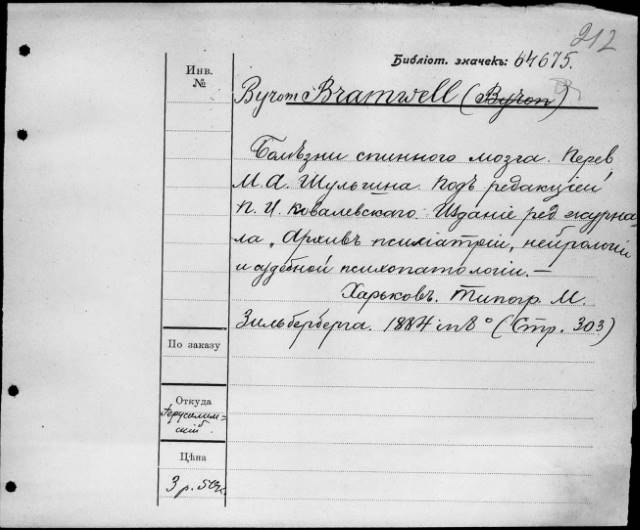 212
Библіот. значекъ: 64675.
Инв. №
Byrom Bramwell (Byron)
Болѣзни спинного мозга. Перев.
М. А. Шульгина. Подъ редакціей
П. И. Ковалевскаго. Изданіе ред. журна-
ла „Архивъ психіатріи, нейрологіи
и судебной психопатологіи. —
Харьковъ. Типогр. М.
Зильберберга. 1884 in 8° (Стр. 303)
По заказу
Откуда
Іерусалим-
скій
Цѣна
3 р. 50 к.